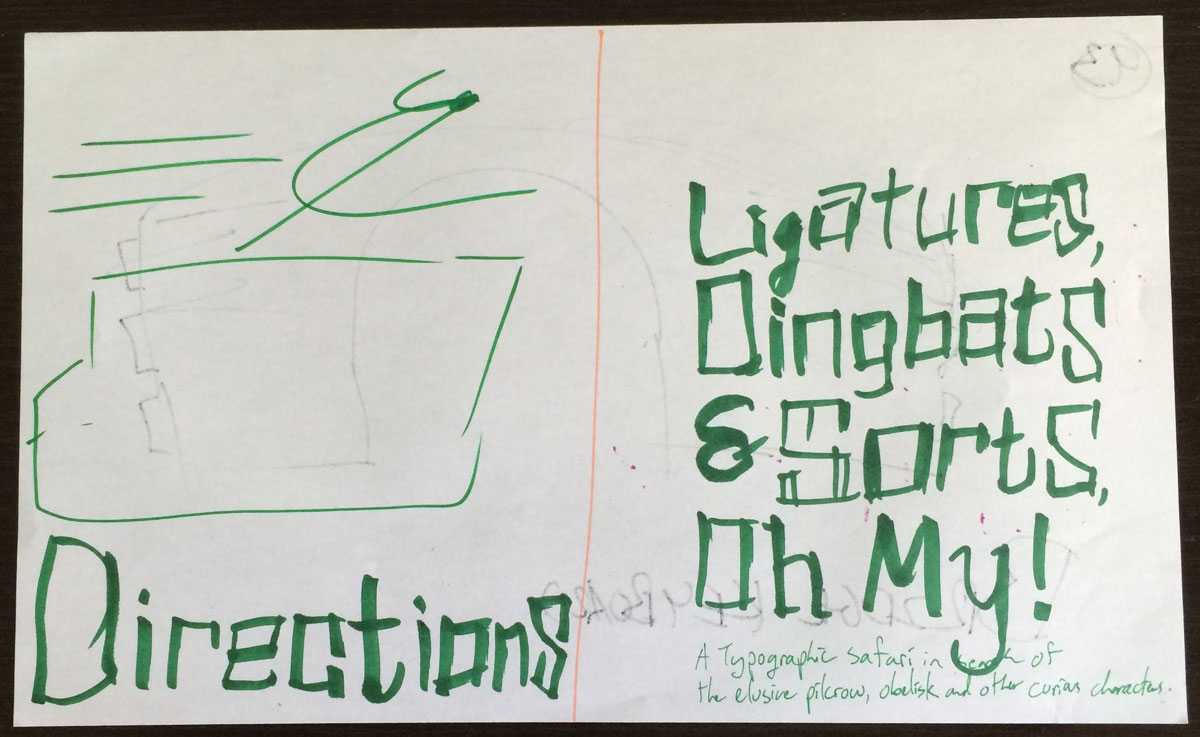 Directions
Ligatures,
Dingbats
& Sorts,
Oh My!
A Typographic Safari in search of
the elusive pilcrow, obelisk and other curious characters.
43